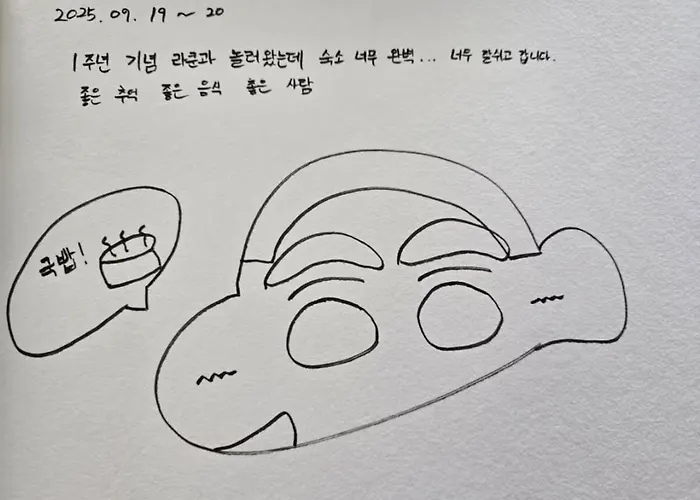 2025. 09. 19 ~ 20
1주년 기념 라쿤과 놀러왔는데 숙소 너무 완벽... 너무 잘쉬고 갑니다.
좋은 추억 좋은 음식 좋은 사람
국밥!